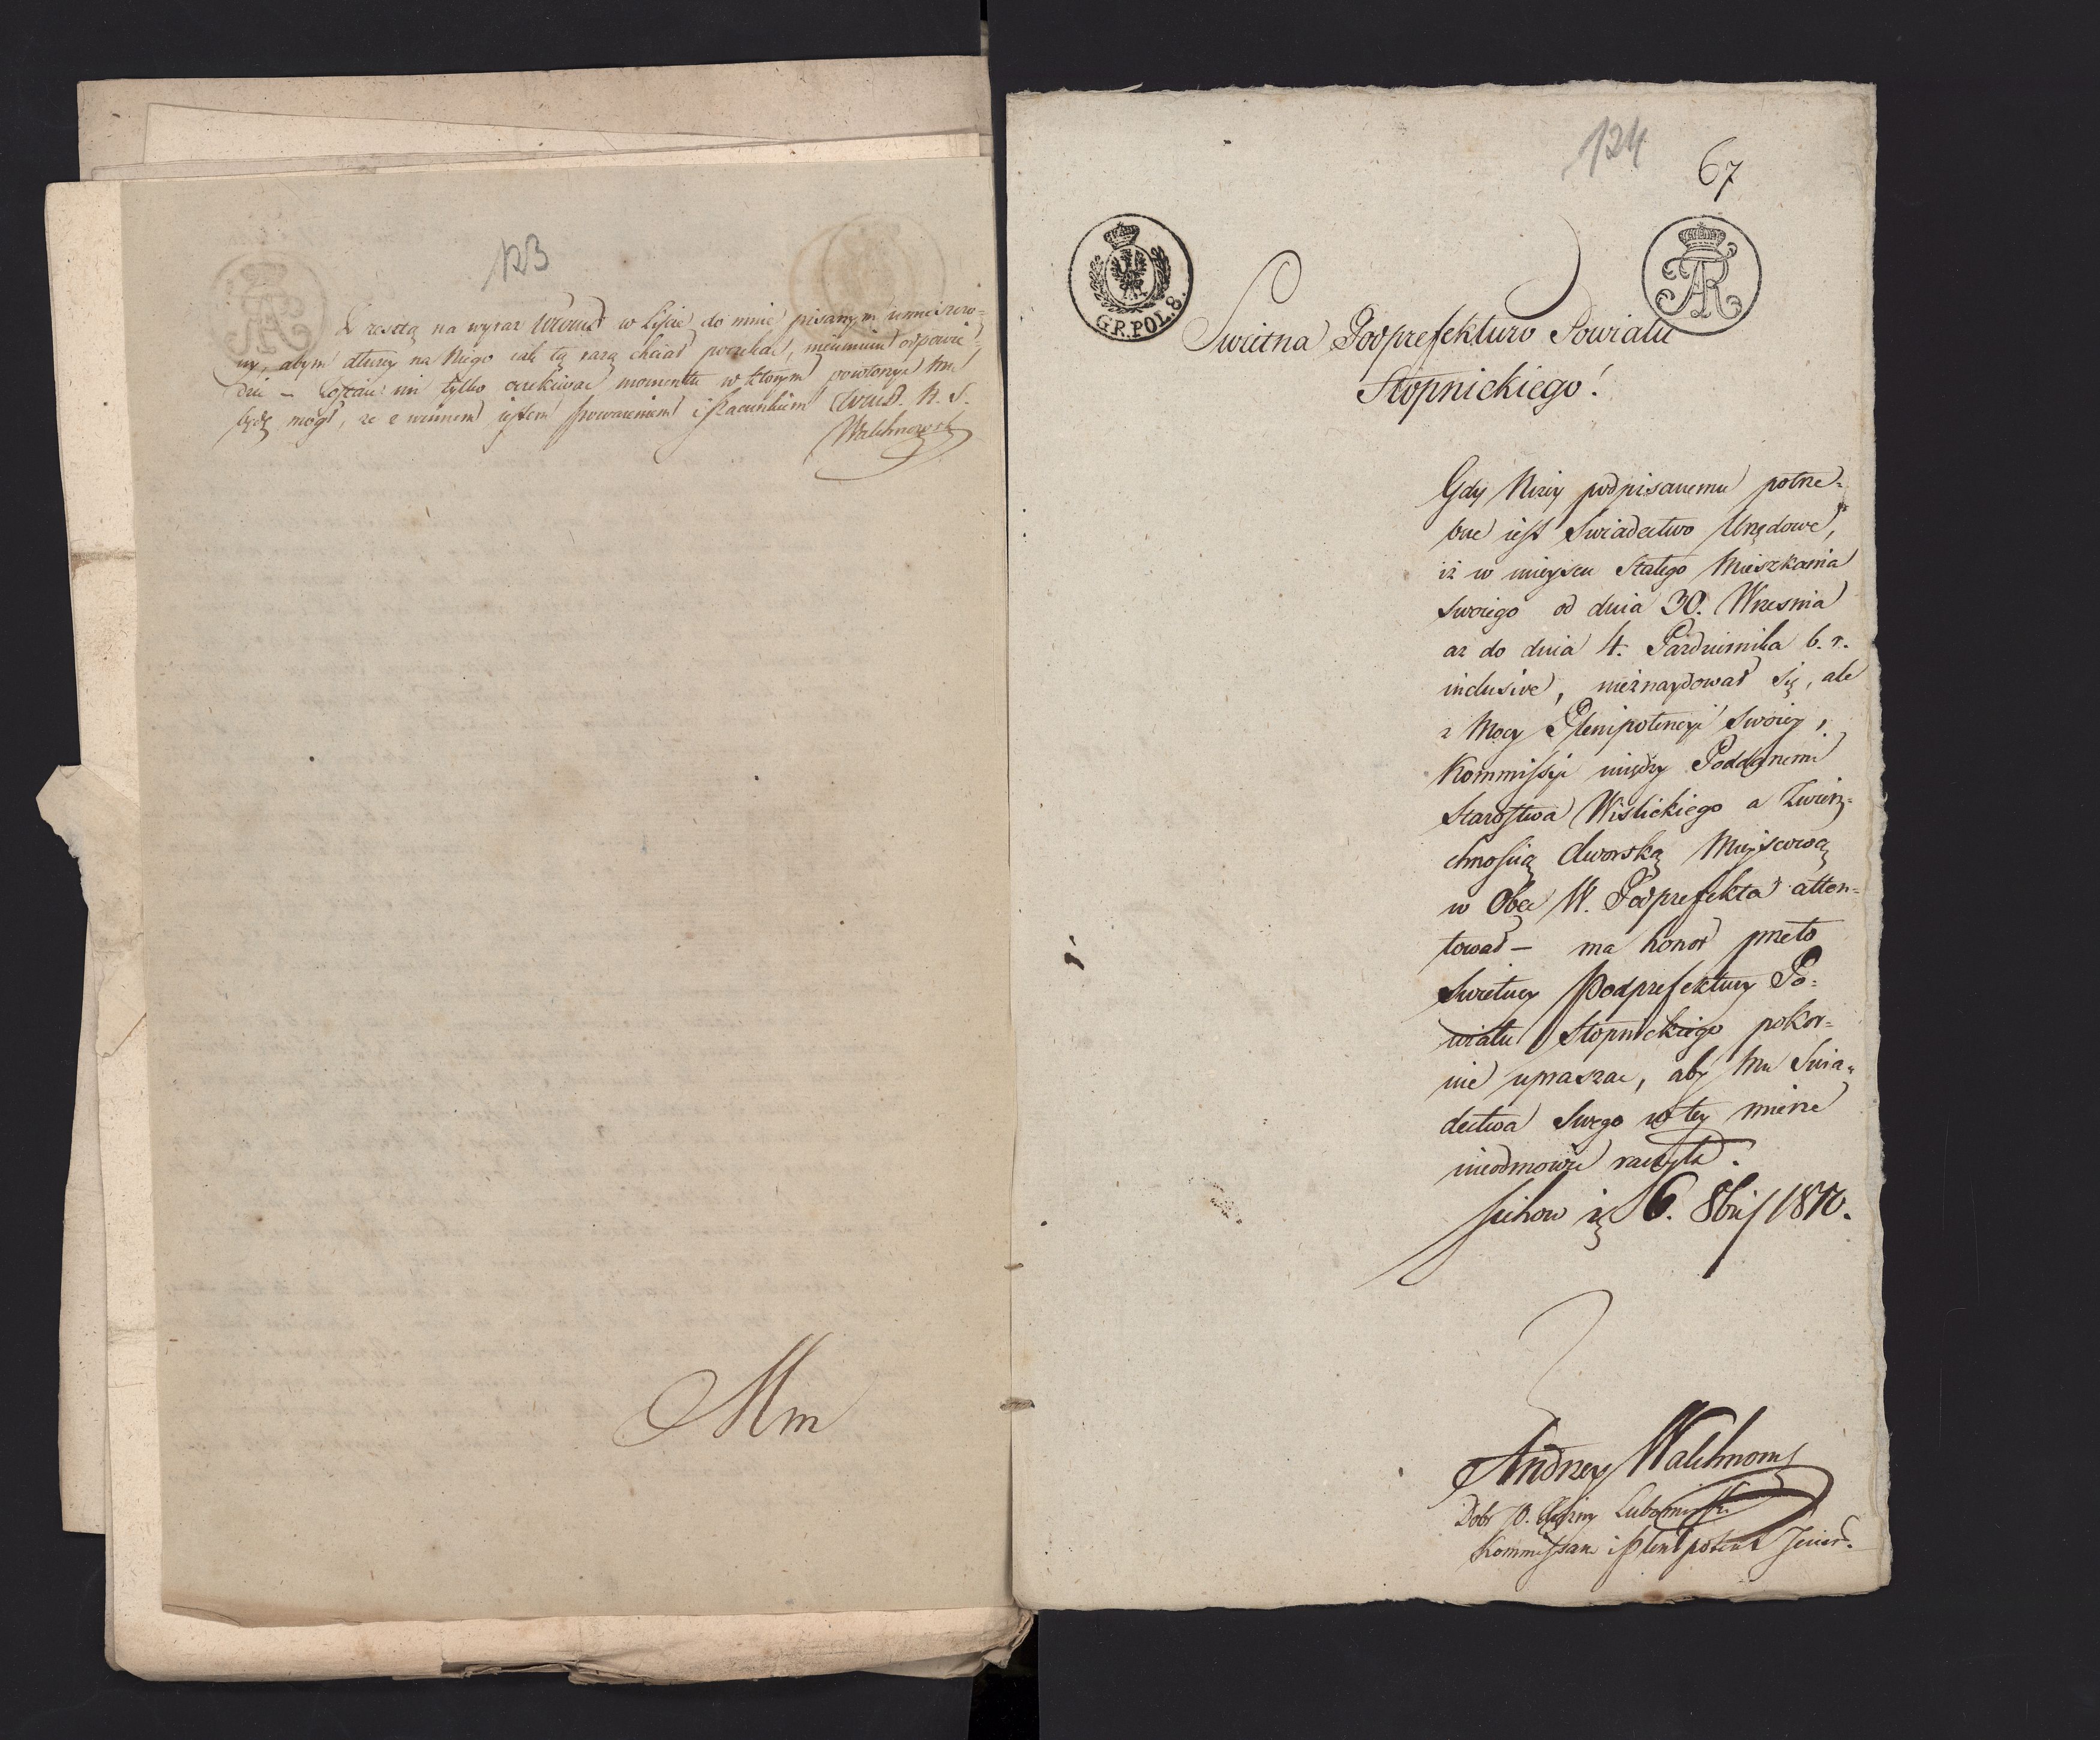 123
Zresztą na wyraz WWind w Liście do mnie pisanym umieszczo-
ny, abym dłużey na Niego całe tę razą chciał poczekać, nieumiem odpowie-
dzić – Zostaie mi tylko oczekiwać momentu w którym powtorzyć mu
będę mógł, że z winnem iestem Poważeniem i Szacunkiem N. S.
Walchnowski
Mm
124
67
GR.POL.8.
AR
Swietna Podprefekturo Powiatu
Stopnickiego!
Gdy Niżey podpisanemu potrze-
bne iest Swiadectwo Urzędowe,
iż w mieyscu Stałego Mieszkania
Swoiego od dnia 30. Wrzesnia
aż do dnia 4. Pazdziernika b. r.
inclusive, nieznaydował Się, ale
z Mocy Plenipotencyi Swoiey,
Kommissyi między Poddanemi
Starostwa Wislickiego a Zwierz-
chnością dworską Mieyscową
w Obec W. Podprefekta atten-
tował – ma honor przeto
Swietney Podprefektury Po-
wiatu Stopnickiego pokor-
nie upraszać, aby mu Swia-
dectwa Swego w tey mierze
nieodmowić raczyła.
Sichow 6. 8bris 1810.
Andrzey Walchnows
Dobr JO. Xężny Lubomirski
Kommissarz i Plenipotent Jener.